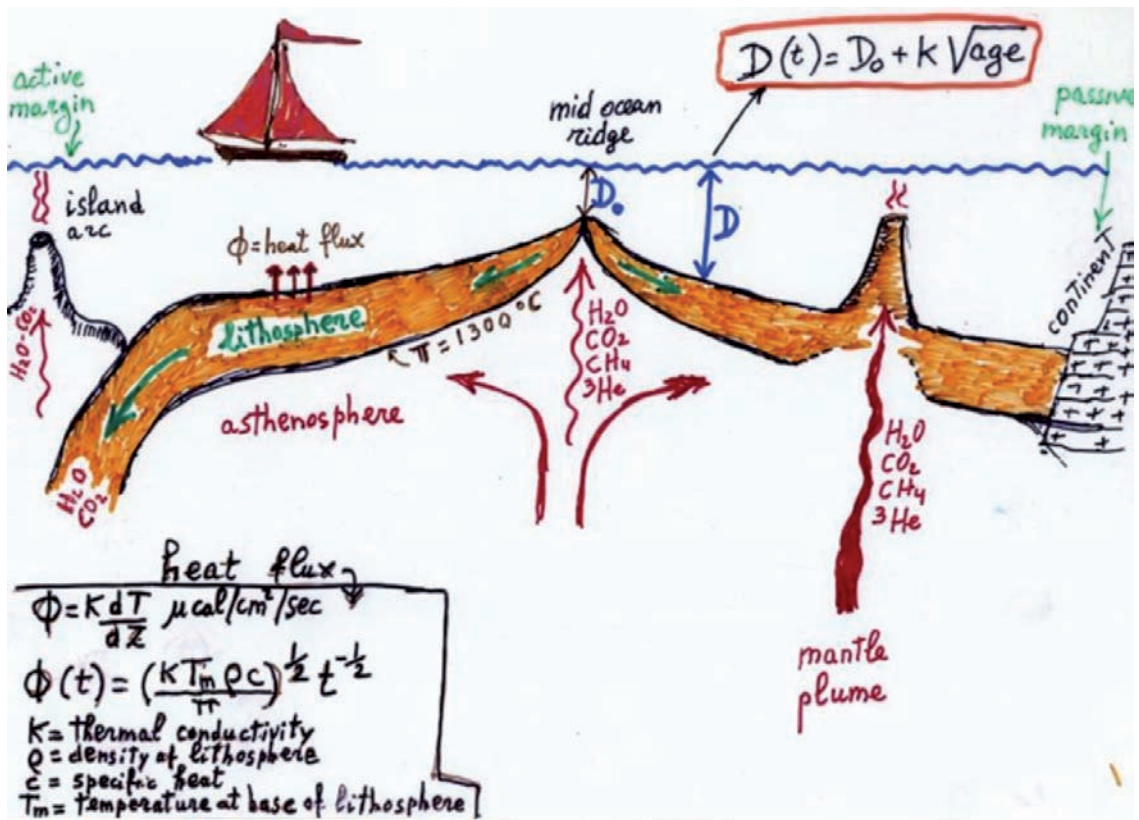 D(t) = D₀ + K √age
active
margin
mid ocean
ridge
passive
margin
island
arc
D₀
D
ϕ = heat flux
lithosphere
π = 1300°C
continent
H₂O-CO₂
H₂O
CO₂
CH₄
³He
asthenosphere
H₂O
CO₂
CH₄
³He
H₂O
CO₂
mantle
plume
heat flux
ϕ = K dT/dZ μcal/cm²/sec
ϕ(t) = (K Tm ρc / π)^½ t^-½
K = thermal conductivity
ρ = density of lithosphere
c = specific heat
Tm = temperature at base of lithosphere
+ + +
+ + + +
+ + + +
+ + + +